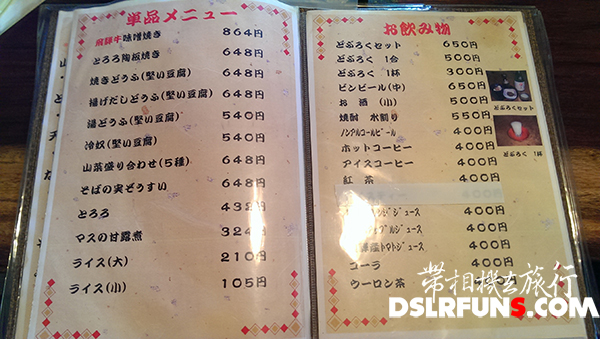 単品メニュー
飛騨牛味噌焼き 864円
とろろ陶板焼き 648円
焼きどうふ(堅い豆腐) 648円
揚げだしどうふ(堅い豆腐) 648円
湯どうふ(堅い豆腐) 540円
冷奴(堅い豆腐) 540円
山菜盛り合わせ(5種) 648円
そばの実ぞうすい 648円
とろろ 432円
マスの甘露煮 324円
ライス(大) 210円
ライス(小) 105円
お飲み物
どぶろくセット 650円
どぶろく 1合 500円
どぶろく 1杯 300円
ビンビール(中) 650円
お酒(小) 550円
焼酎 水割り 500円
ノンアルコールビール 400円
ホットコーヒー 400円
アイスコーヒー 400円
紅茶 400円
ジュース 400円
ジュース 400円
トマトジュース 400円
コーラ 400円
ウーロン茶
どぶろくセット
どぶろく 1杯
帶相機去旅行
DSLRFUNS.COM